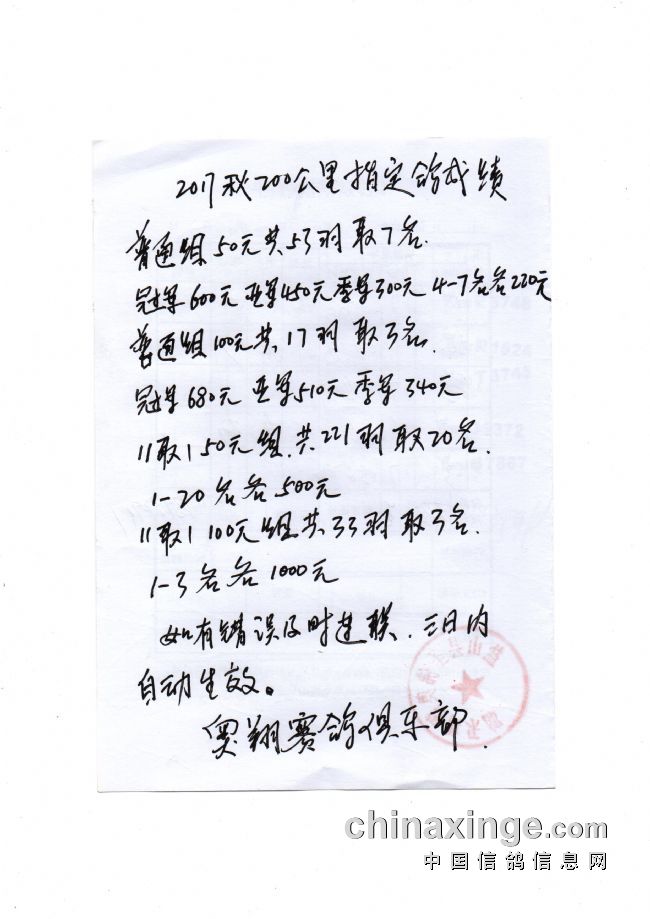 2017秋200公里指定鸽成绩
普通组50元共53羽取7名.
冠军600元亚军450元季军300元 4-7名各220元
普通组100元共17羽取3名.
冠军680元亚军510元季军340元
11取1 50元组.共221羽取20名.
1-20名各500元
11取1 100元组共33羽取3名.
1-3名各1000元
如有错误及时连联.三日内
自动生效。
奥翔赛鸽俱乐部.
chinaxinge.com
中国信鸽信息网